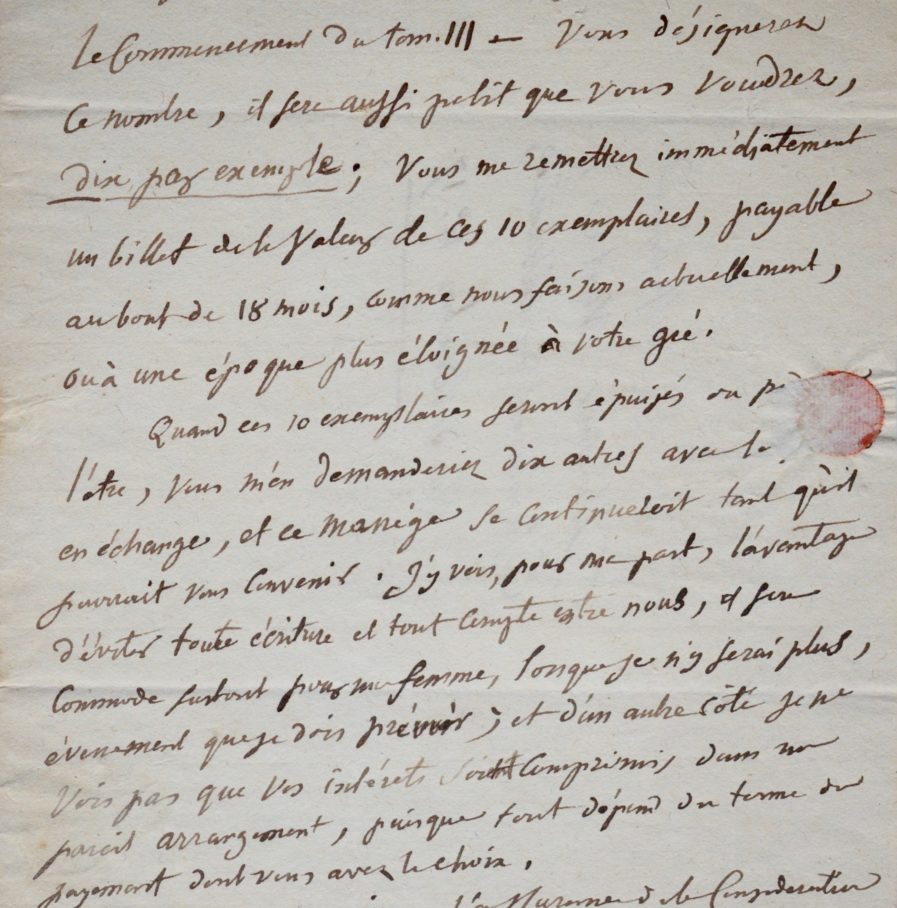 le Commencement du tom. III — Vous désignerez
Ce nombre, il sera aussi petit que vous voudrez,
dix par exemple; Vous me remettrez immédiatement
un billet de la valeur de ces 10 exemplaires, payable
au bout de 18 mois, comme nous faisons actuellement,
ou à une époque plus éloignée à votre gré.
Quand ces 10 exemplaires seront épuisés ou
l'être, vous m'en demanderiez dix autres avec le
en échange, et ce manège se continueroit tant qu'il
pourrait vous convenir. J'y vois, pour ma part, l'avantage
d'éviter toute écriture et tout compte entre nous, il sera
Commode surtout pour ma femme, lorsque je n'y serai plus,
évenement que je dois prévoir; et d'un autre côté je ne
vois pas que vos intérets soient compromis, dans un
pareil arrangement, puisque tout dépend du terme du
payement dont vous avez le choix.
l'assurance de la Considération